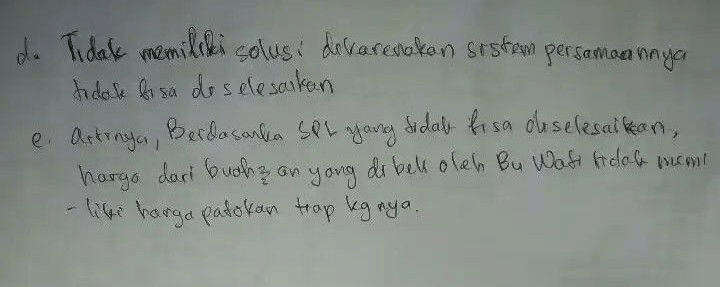 d. Tidak memiliki solusi dikarenakan sistem persamaannya
tidak bisa di selesaikan
e. Artinya, Berdasarka SPL yang tidak bisa diselesaikan,
harga dari buah2an yang di beli oleh Bu Wati tidak memi
- liki harga patokan tiap kg nya.